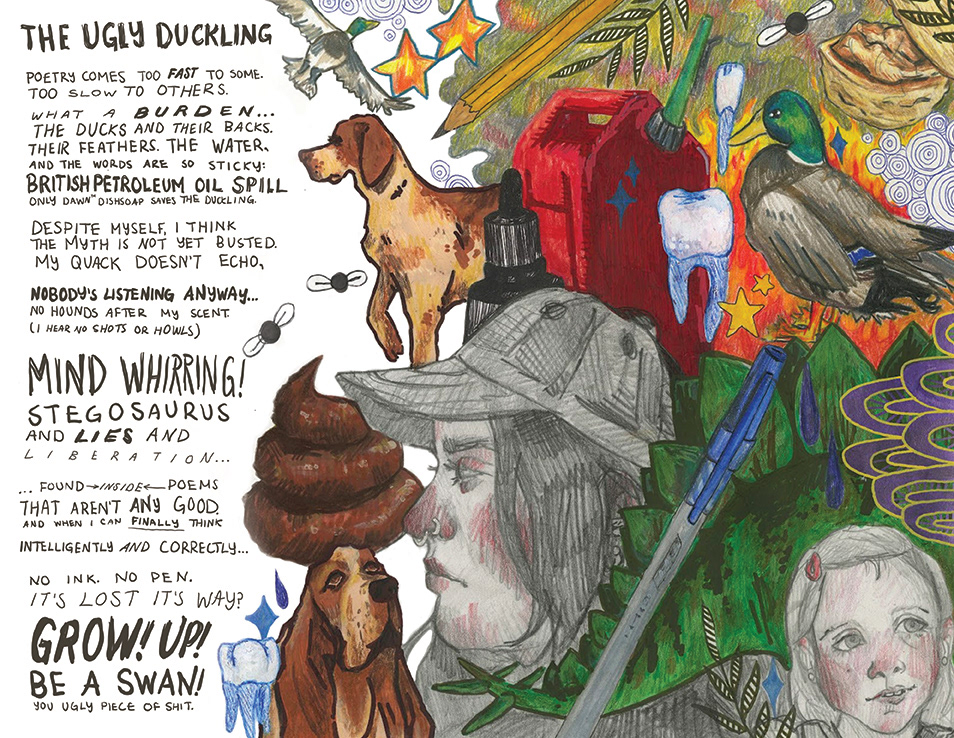 THE UGLY DUCKLING
POETRY COMES TOO FAST TO SOME.
TOO SLOW TO OTHERS.
WHAT A BURDEN...
THE DUCKS AND THEIR BACKS.
THEIR FEATHERS. THE WATER.
AND THE WORDS ARE SO STICKY:
BRITISH PETROLEUM OIL SPILL
ONLY DAWN™ DISHSOAP SAVES THE DUCKLING.
DESPITE MYSELF, I THINK
THE MYTH IS NOT YET BUSTED.
MY QUACK DOESN'T ECHO,
NOBODY'S LISTENING ANYWAY...
NO HOUNDS AFTER MY SCENT
(I HEAR NO SHOTS OR HOWLS)
MIND WHIRRING!
STEGOSAURUS
AND LIES AND
LIBERATION...
... FOUND →INSIDE← POEMS
THAT AREN'T ANY GOOD.
AND WHEN I CAN FINALLY THINK
INTELLIGENTLY AND CORRECTLY...
NO INK. NO PEN.
IT'S LOST IT'S WAY?
GROW! UP!
BE A SWAN!
YOU UGLY PIECE OF SHIT.